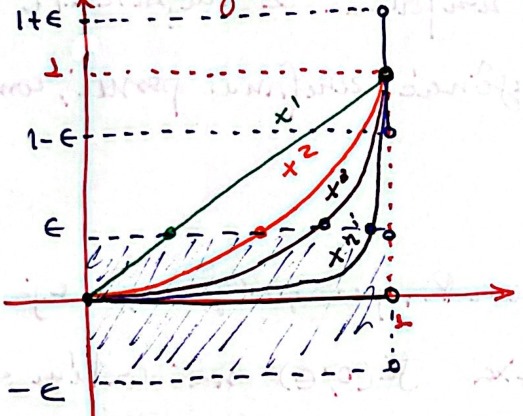 1+ε
1
1-ε
ε
-ε
x¹
x²
x³
xⁿ
1